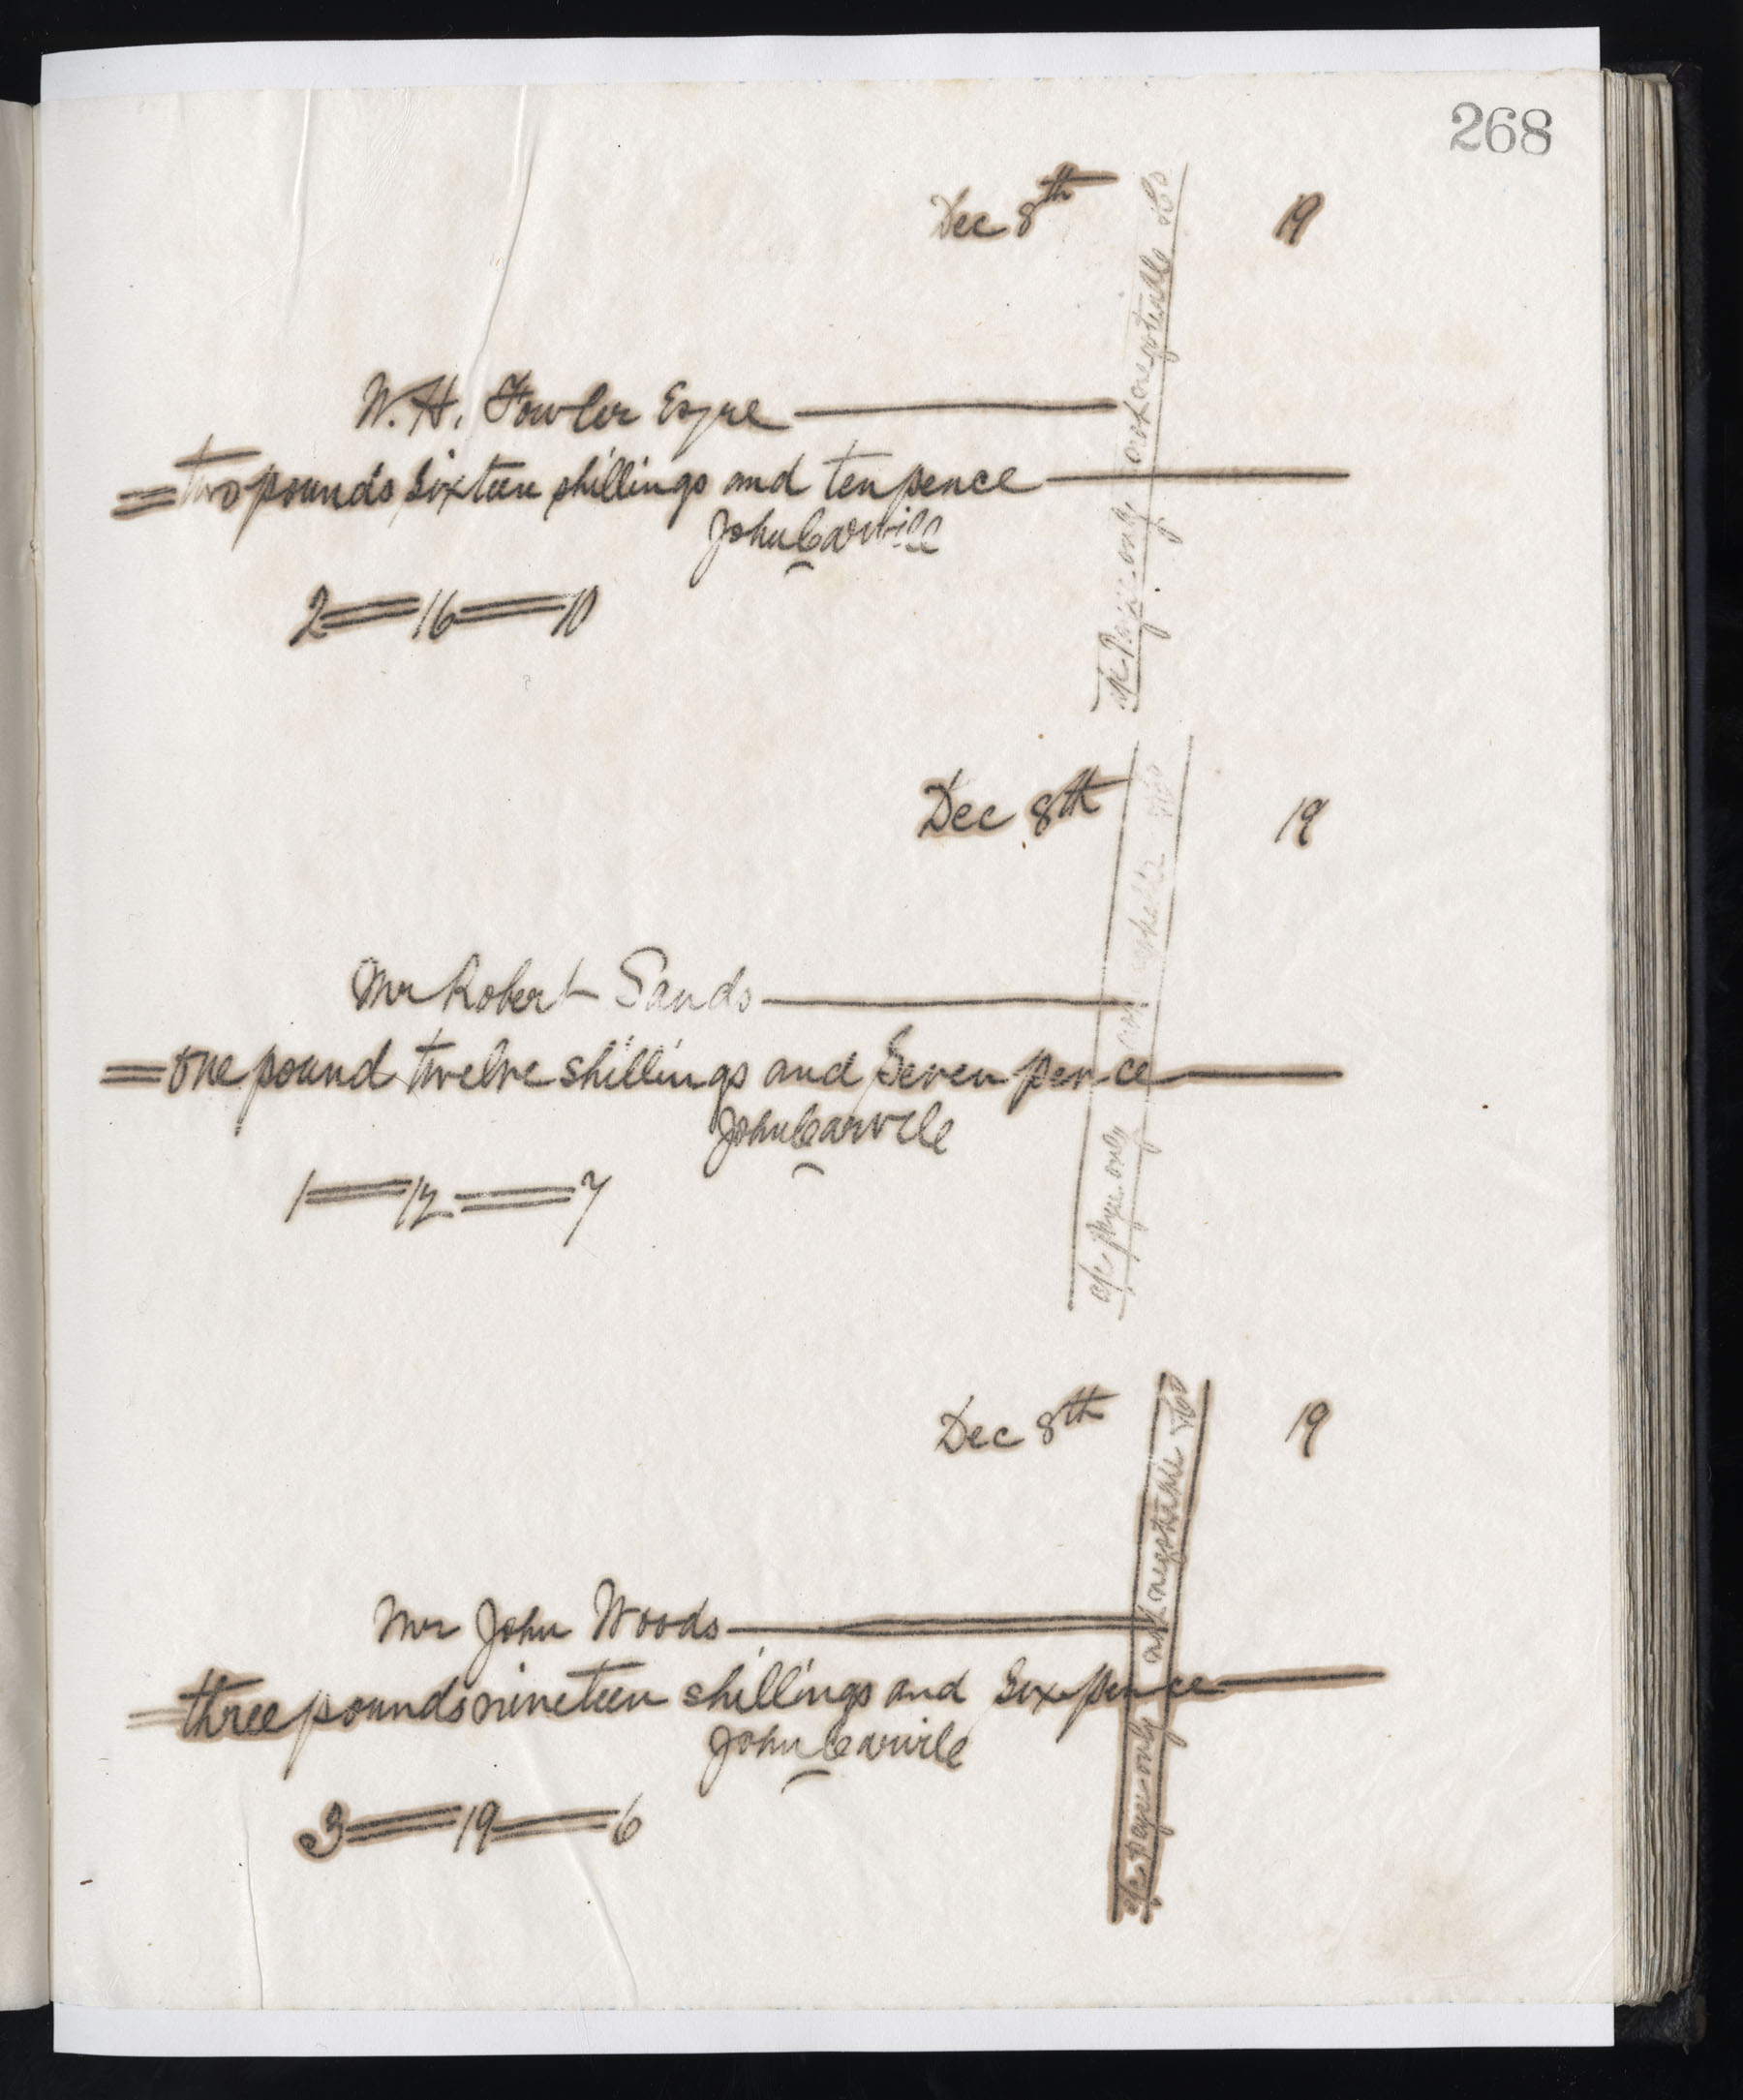 268
Dec 8th 19
W. H. Fowler Esqre
= two pounds sixteen shillings and ten pence
John Carvill
2 = 16 = 10
a/c Payee only not negotiable & Co
Dec 8th 19
Mr Robert Sands
= One pound twelve shillings and Seven pence
John Carvill
1 = 12 = 7
a/c payee only not negotiable & Co
Dec 8th 19
Mr John Woods
= three pounds nineteen shillings and Six pence
John Carvill
3 = 19 = 6
a/c payee only not negotiable & Co